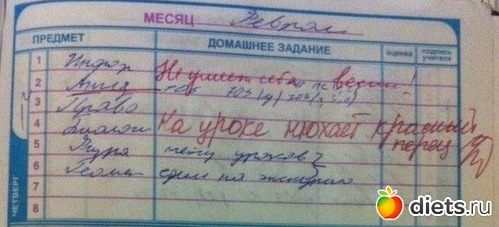 МЕСЯЦ Феврал
ПРЕДМЕТ ДОМАШНЕЕ ЗАДАНИЕ оценка подпись учителя
1 Инфор Не умеет себя вести!
2 Англ
3 Право
4 Биологи На уроке нюхает красный перец
5 Физра нету уроков
6 Геомет
7
8
ЧЕТВЕРГ
diets.ru